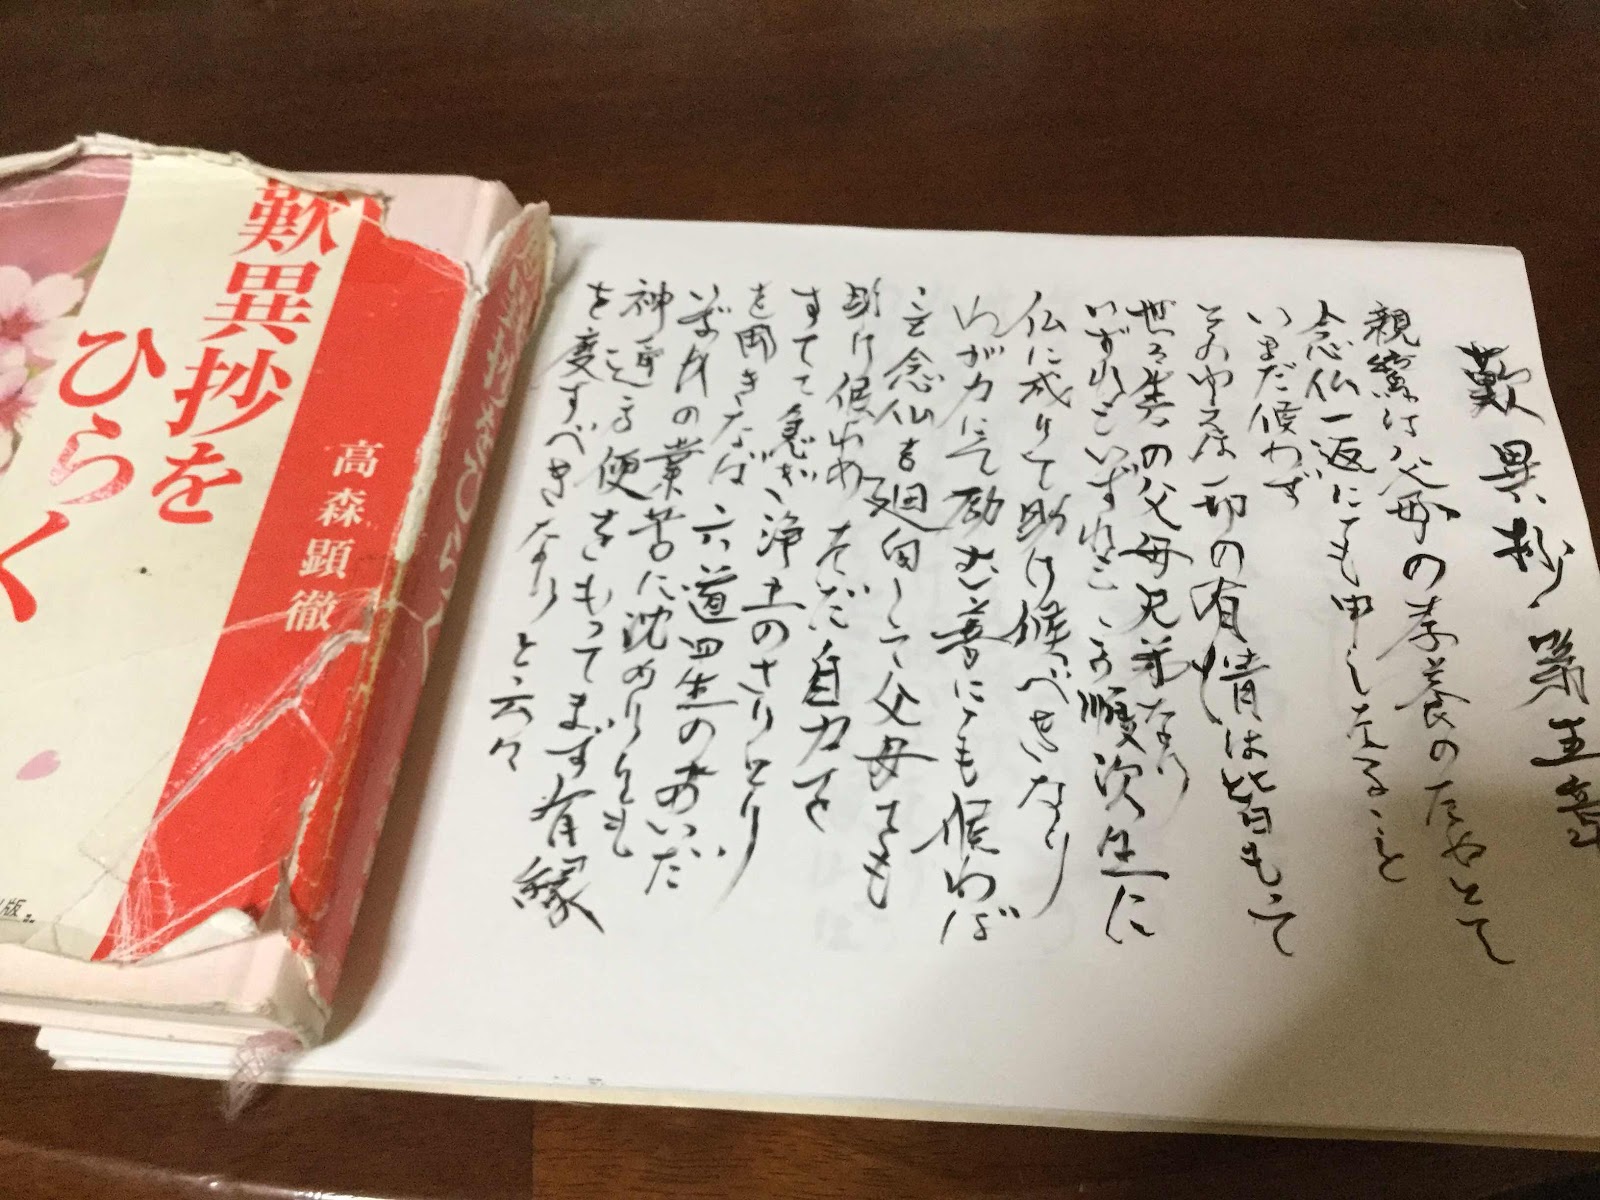 歎異抄 第五章
親鸞は父母の孝養のためとて
念仏一返にても申したること
いまだ候わず
そのゆえは一切の有情は皆もって
世々生々の父母兄弟なり
いずれもいずれもこの順次生に
仏に成りて助け候べきなり
わがカにて励む善にても候わば
こそ念仏を廻向して父母をも
助け候わめ ただ自力を
すてて急ぎ浄土のさとり
を開きなば 六道四生のあいだ
いずれの業苦に沈めりとも
神通方便をもってまず有縁
を度すべきなりと云々
歎異抄を
ひらく
高森顕徹
出版